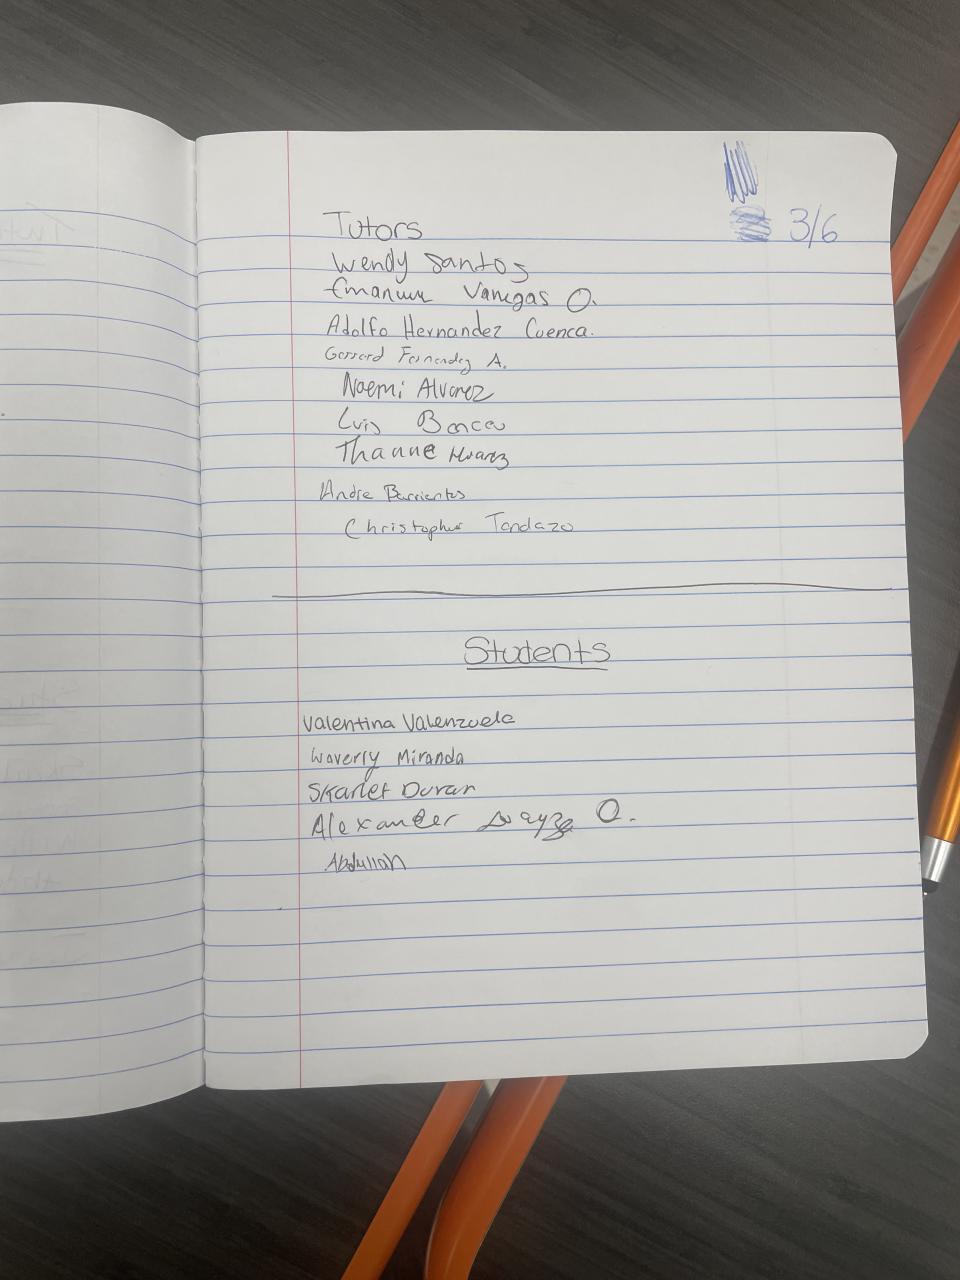 3/6
Tutors
Wendy Santos
Vanegas O.
Adolfo Hernandez Cuenca.
Gerrard Fernandez A.
Noemi Alvarez
Luis
Thanne Alvarez
Andre Barrientos
Christopher Tandazo
Students
Valentina Valenzuela
Waverly Miranda
Skarlet Duran
Alexander O.
Abdullah